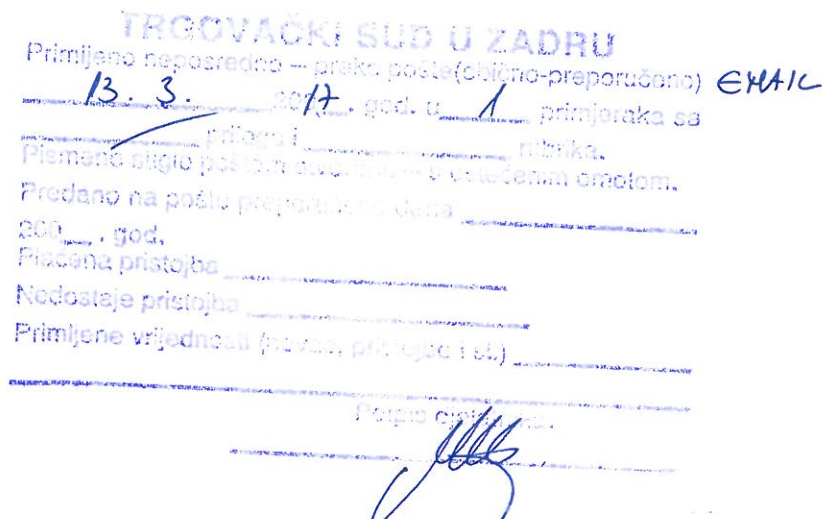 TRGOVAČKI SUD U ZADRU
Primijeno neposredno – preko pošte(obično-preporučeno) EMAIL
13. 3. 200 17. god. u 1 primjeraka sa
priloga i rubrika.
Pismeno stiglo poštom s oštećenim omotom.
Predano na poštu preporučeno dana
200 . god.
Plaćena pristojba
Nedostaje pristojba
Primljene vrijednosti (novac, pristojbe i sl.)
Potpis